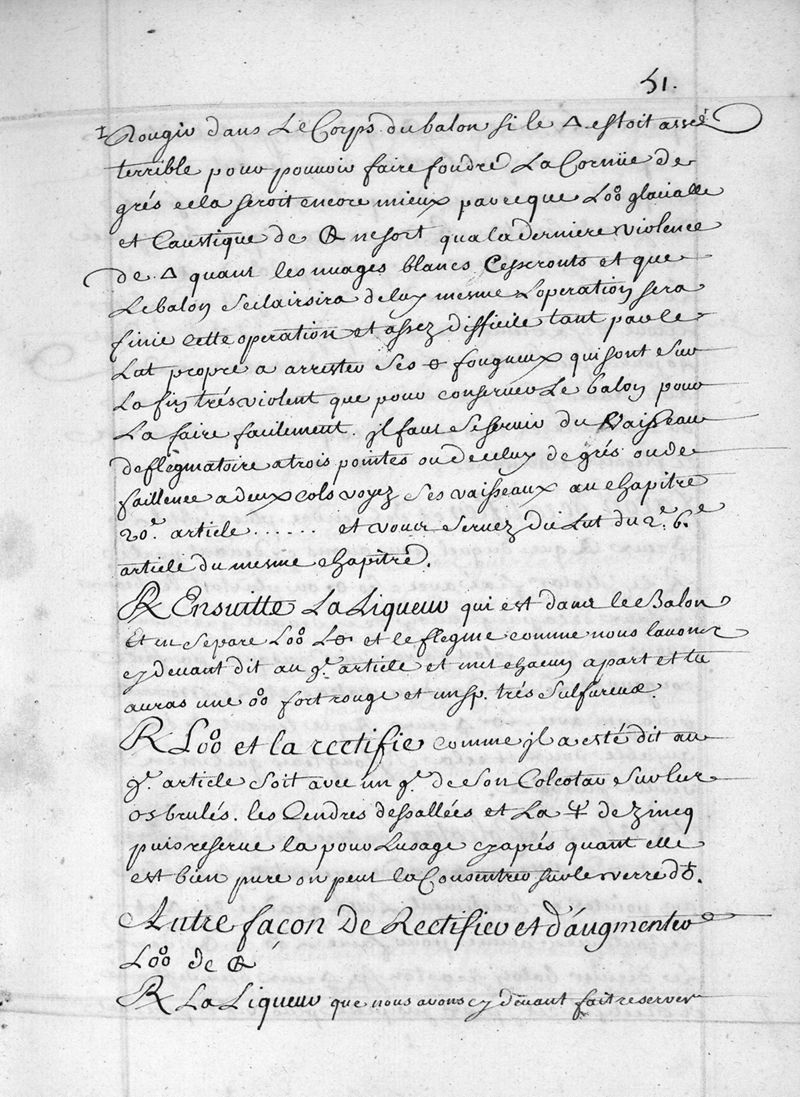 51.
Rougir dans Le Corps du balon si le 🜂 estoit assé
terrible pour pouvoir faire foudre La Cornüe de
grés cela seroit encore mieux parceque L'oo glacialle
et Caustique de 🜖 ne sort qu'a la derniere violence
de 🜂 quant les nuages blancs Cesseronts et que
Le balon s'eclairsira deluy mesme L'operation sera
finie cette operation et assez difficile tant par le
Lut propre a arrester ses fougueux qui sont sur
La fin trés violent que pour conserver Le balon pour
La faire facilement. jl faut se servir du Vaisseau
deflegmatoire a trois pointes ou de celuy de grés ou de
faillence a deux cols voyez ses vaisseaux au chapitre
20.e article ...... et vour servez du Lut du 2.e 6.e
article du mesme chapitre.
℞ Ensuitte La Liqueur qui est dans le Balon
Et en separe L'oo et le flegme comme nous l'avons
cy devant dit au 9.e article et met chacun apart et tu
auras une oo fort rouge et un sp. trés sulfureux
℞ L'oo et la rectifie comme jl a esté dit au
9.e article soit avec un 9.e de son Colcotar sur les
os brulés. les Cendres dessallées et La de Zincq
puis reserve la pour L'usage cy aprés quant elle
est bien pure on peut la Consentrer sur le verre d'♁.
Autre façon de Rectifier et d'augmenter
L'oo de 🜖
℞ La Liqueur que nous avons cy devant fait reserver